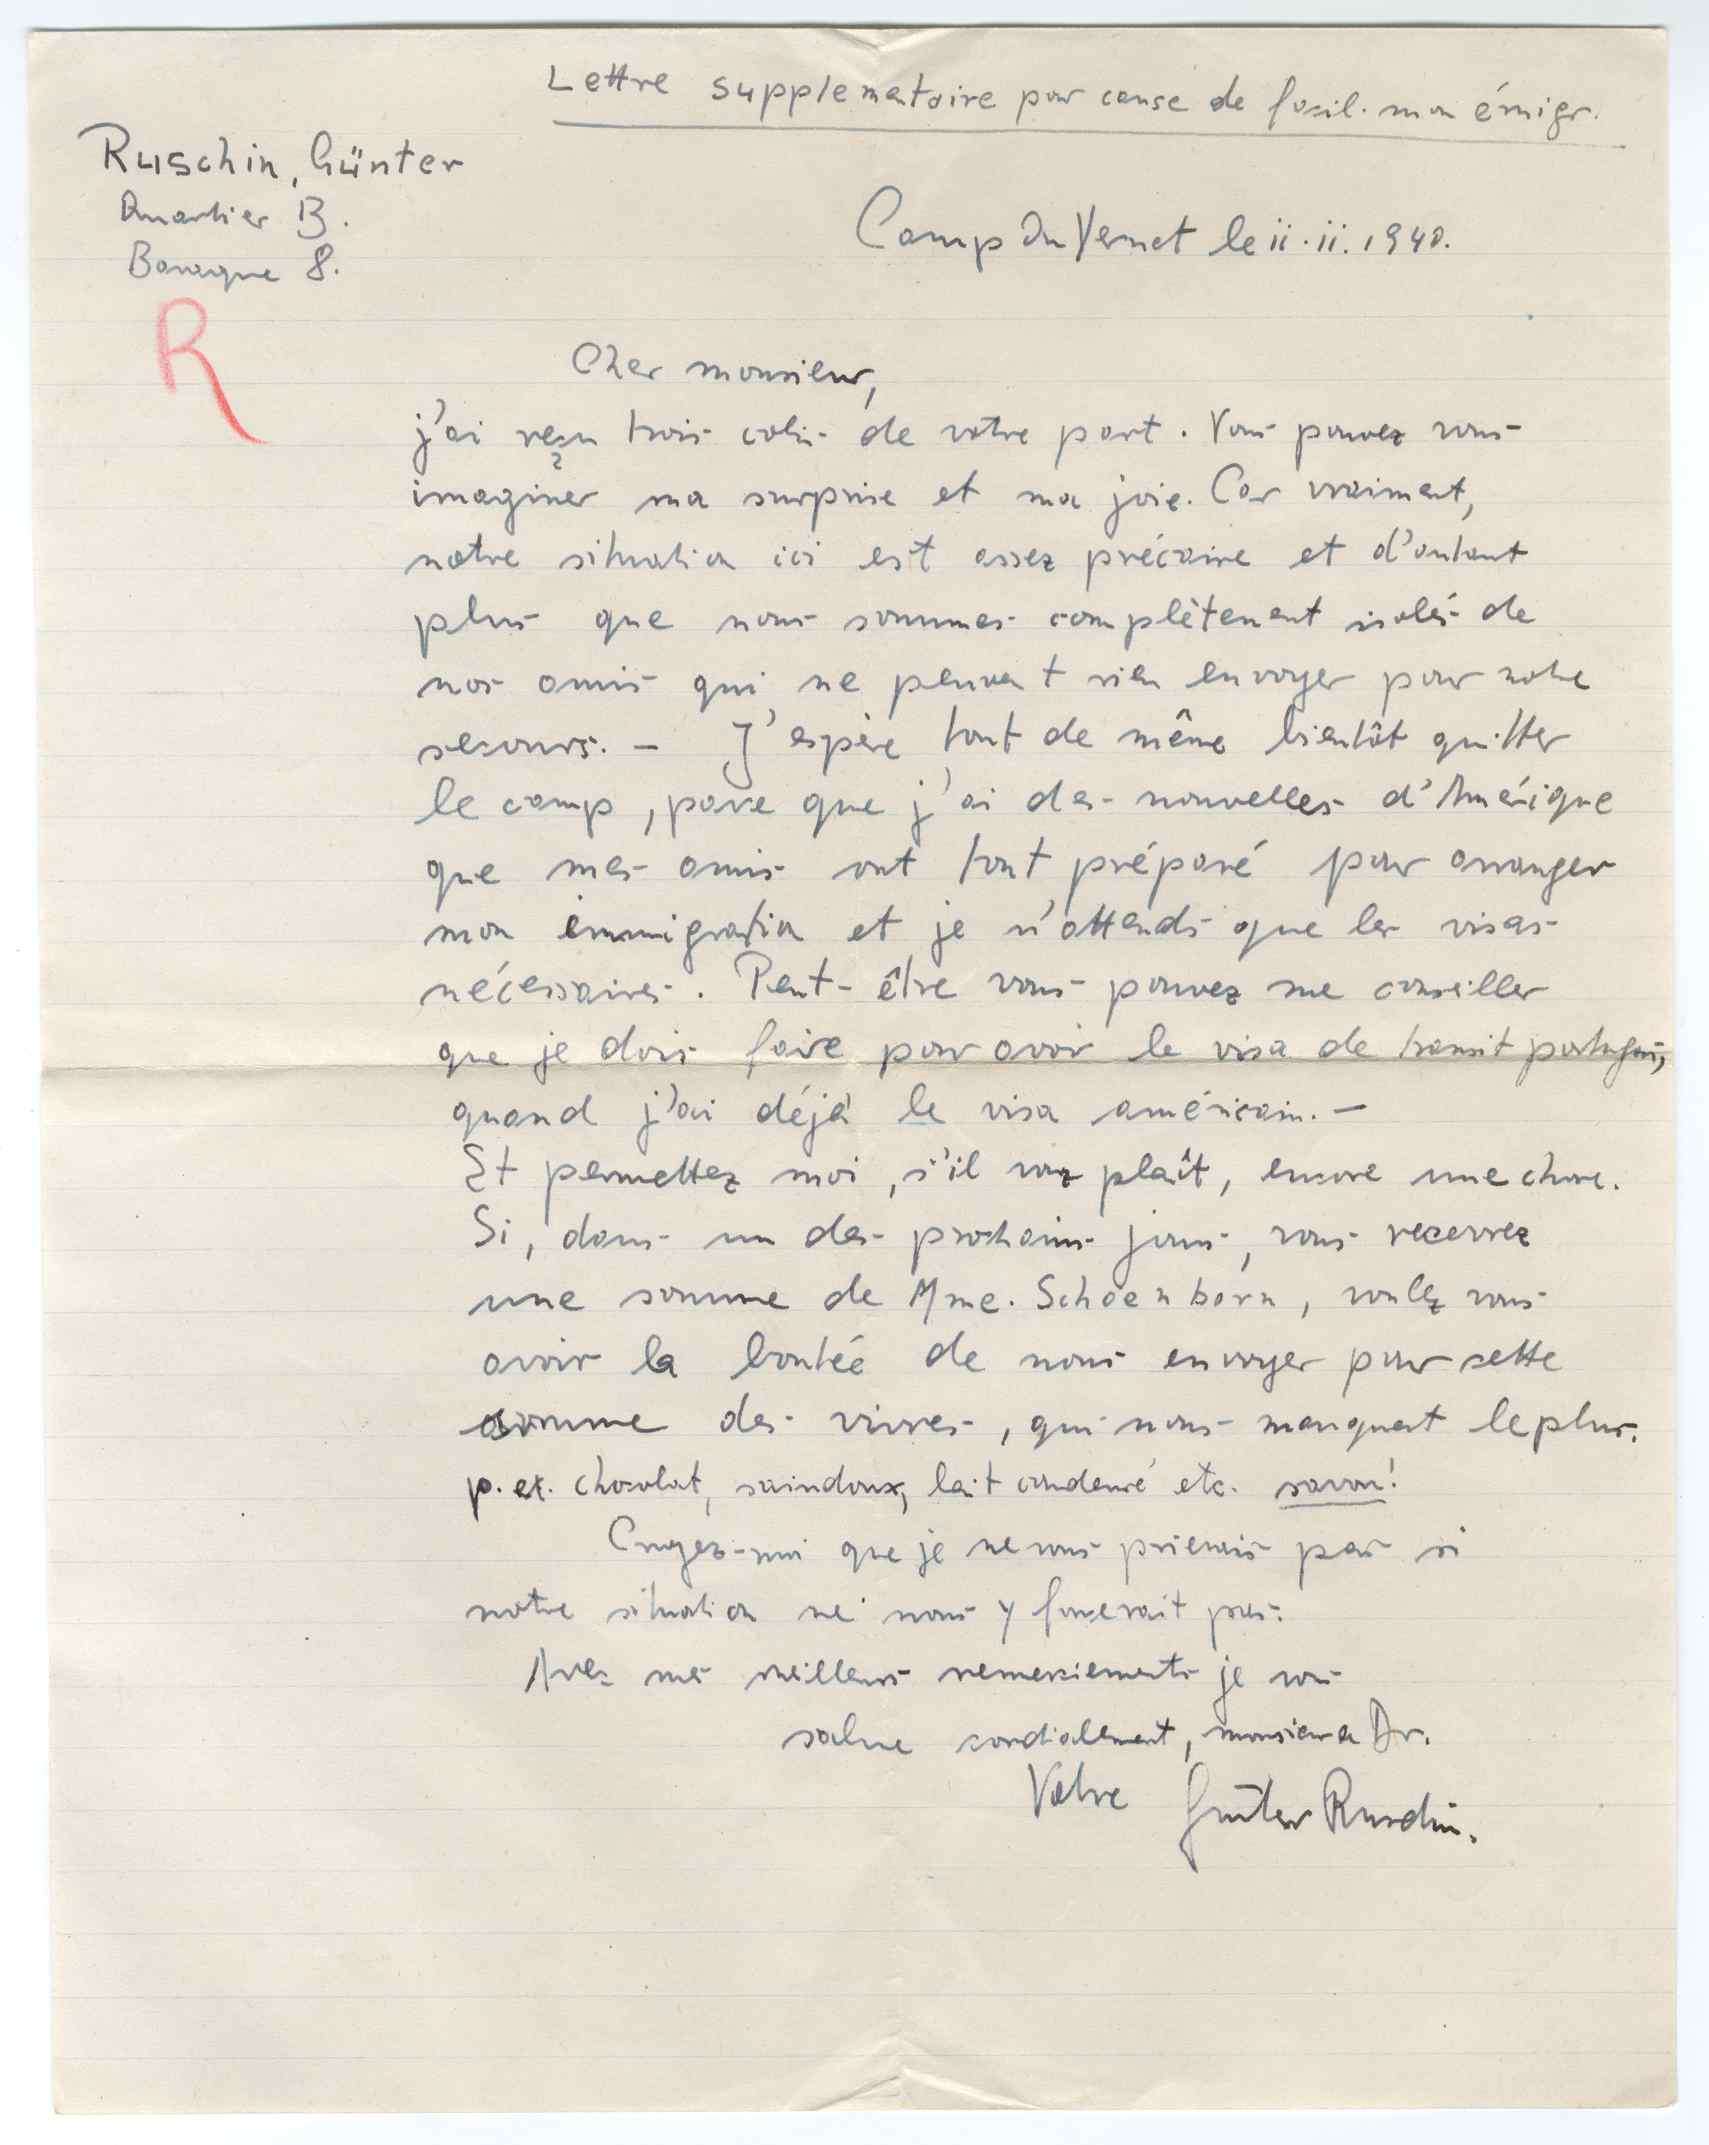 Lettre supplementaire pour cause de facil. mon émigr.
Ruschin, Günter
Quartier B.
Baraque 8.
Camp du Vernet le ii.ii.1940.
R
Cher monsieur,
j'ai reçu trois colis de votre part. Vous pouvez vous
imaginer ma surprise et ma joie. Car vraiment,
notre situation ici est assez précaire et d'autant
plus que nous sommes complètement isolés de
nos amis qui ne peuvent rien envoyer pour notre
secours. — J'espère tout de même bientôt quitter
le camp, parce que j'ai des nouvelles d'Amérique
que mes amis ont tout préparé pour arranger
mon immigration et je n'attends que les visas
nécessaires. Peut-être vous pouvez me conseiller
que je dois faire pour avoir le visa de transit portugais,
quand j'ai déjà le visa américain. —
Et permettez moi, s'il vous plaît, encore une chose.
Si, dans un des prochains jours, vous recevrez
une somme de Mme. Schoenborn, voulez vous
avoir la bontée de nous envoyer pour cette
somme des vivres, qui nous manquent le plus.
p. ex. chocolat, saindoux, lait condensé etc. savon!
Croyez-moi que je ne vous prierais pas si
notre situation ne nous y forcerait pas.
Avec mes meilleurs remerciements je vous
salue cordialement, monsieur le Dr.
Votre Günter Ruschin.